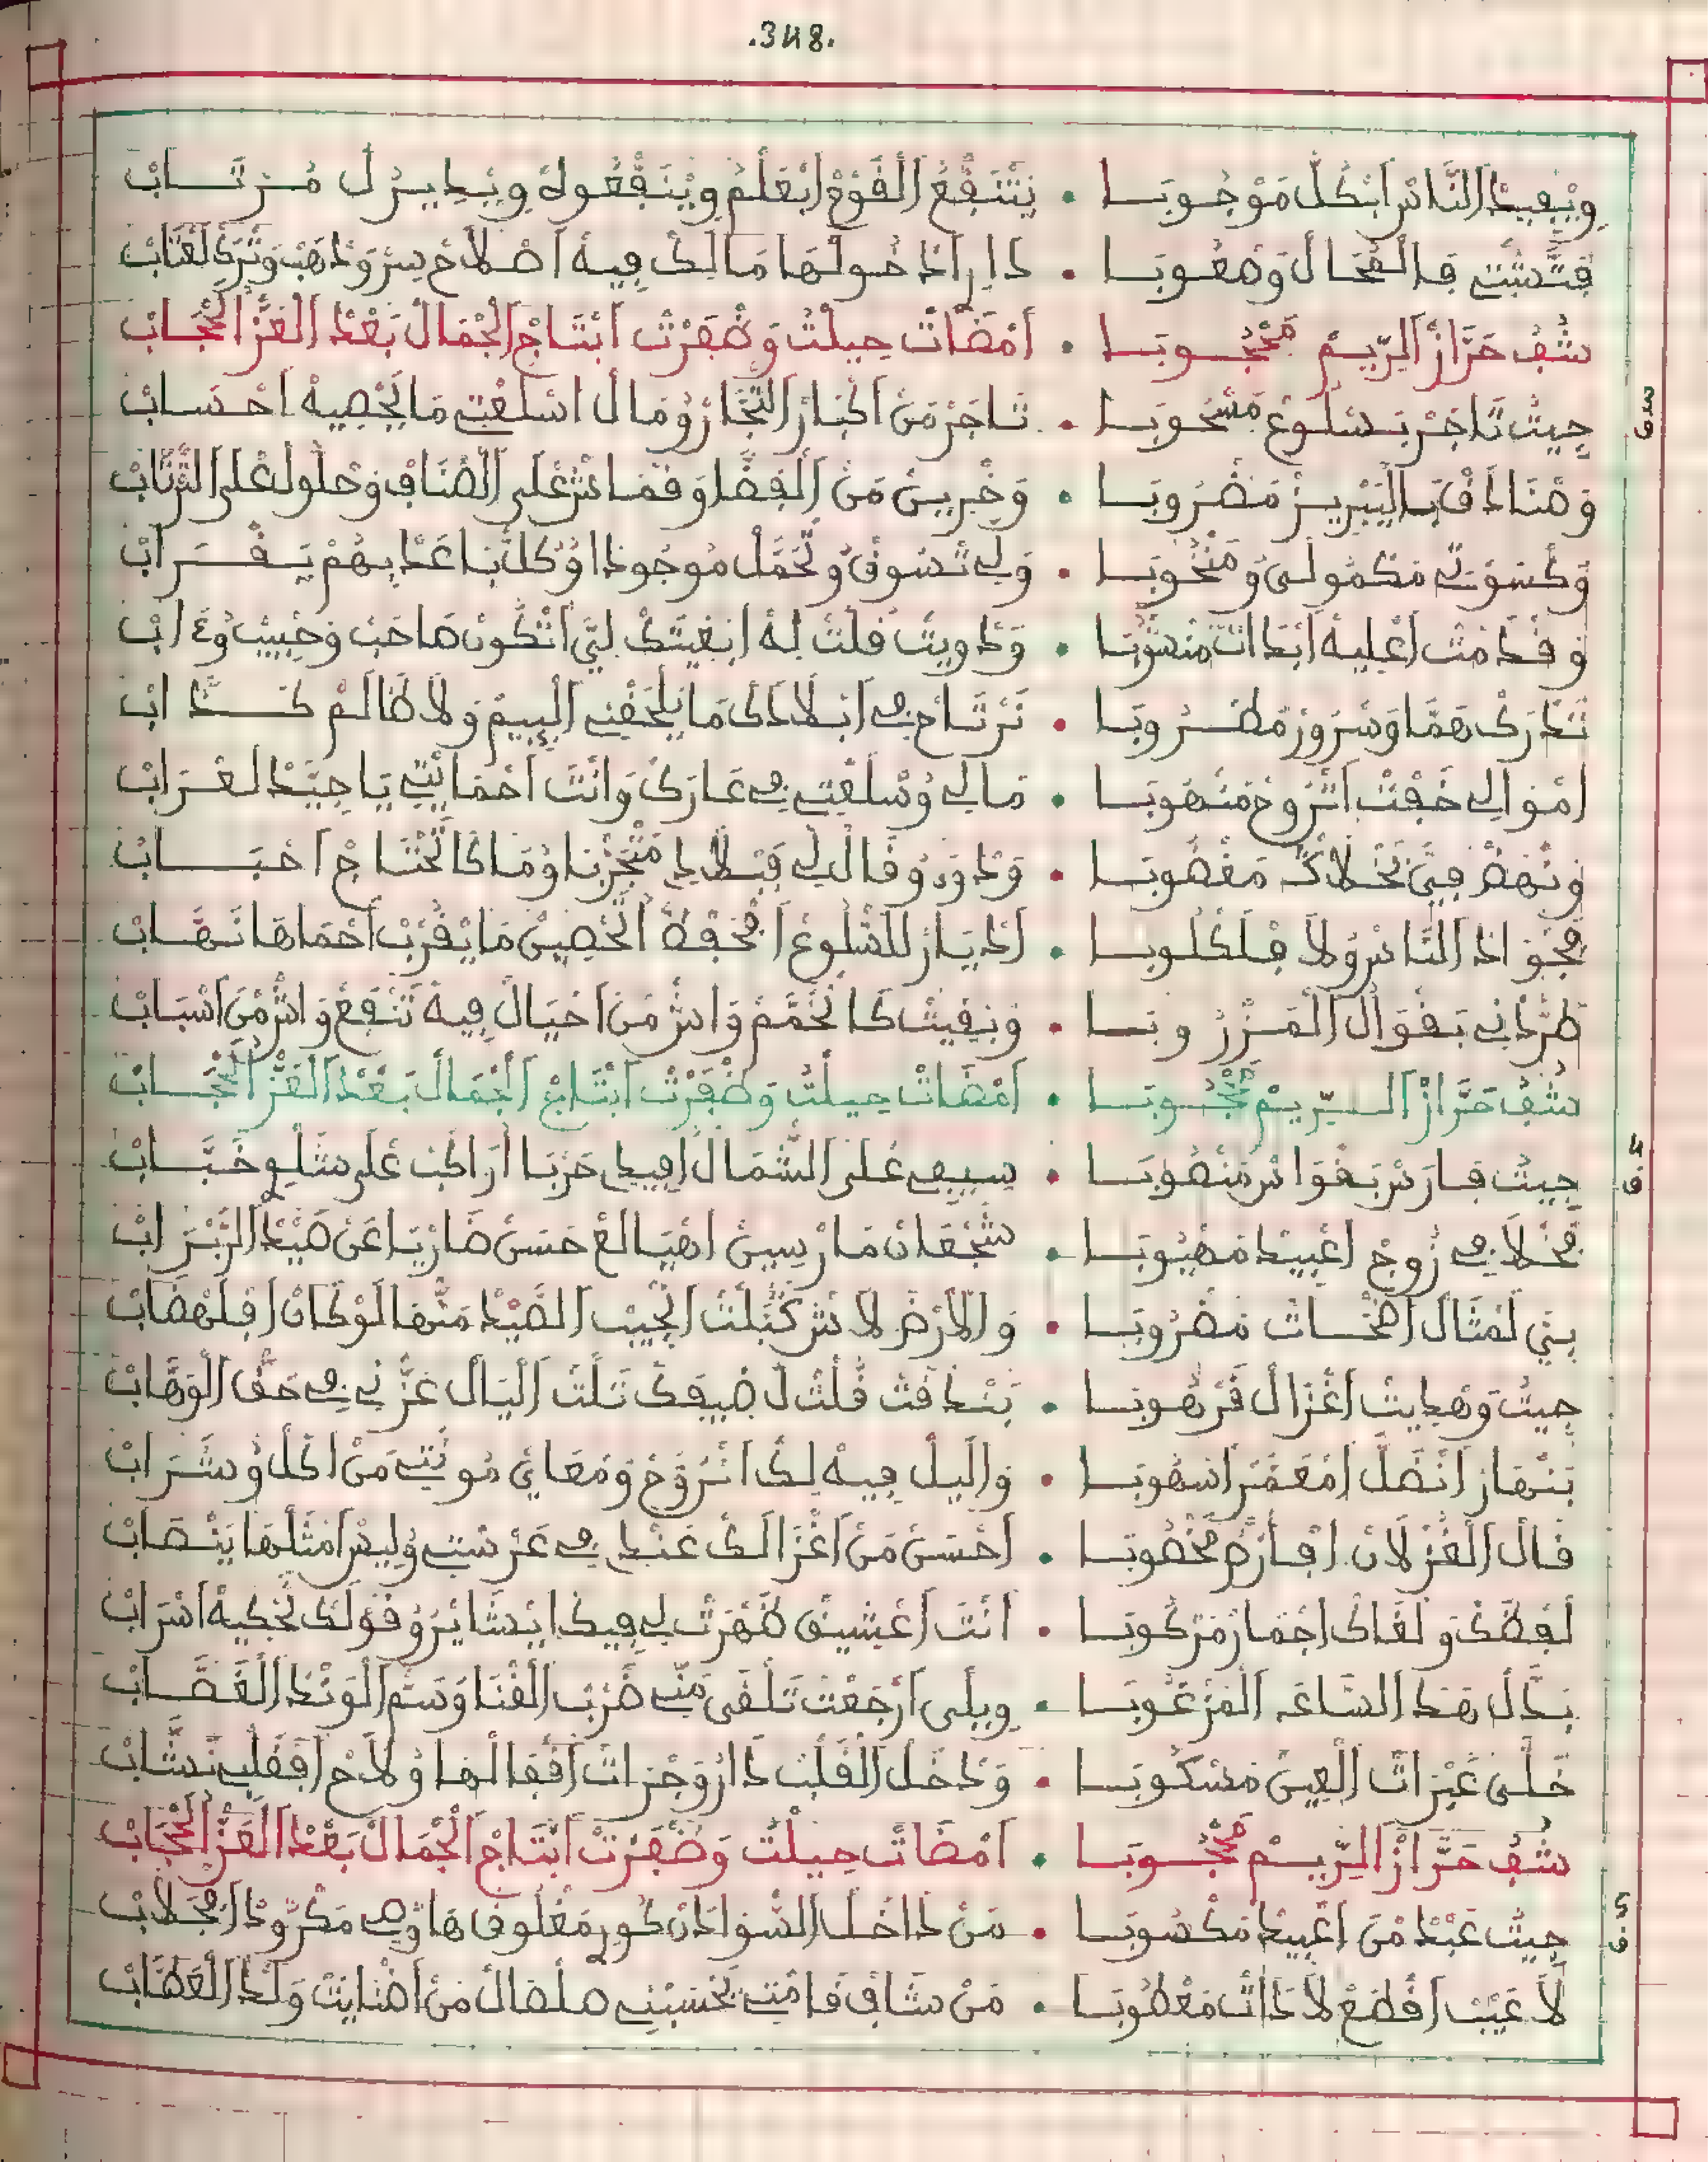 .348.
وِيْفِيدْ النَّاسْ ابْكُلْ مَوْجُوبَا • يَتْنَفَّعْ الْقَوْمْ ابْعَلْمُ وِيْنَفّْعُولُ وِيْدِيرْ لُ مُرْتَابْ
فَتَّشْتِ فَالْمُحَالْ وَصْعُوبَا • دَارْ ادْخُولْهَا مَا لَكْ فِيهْ اصْلَاحْ سِرْ وَذْهَبْ وَتْرَكْ لَعْتَابْ
شُفْ حَرَّازْ الرِّيمْ مَحْجُوبَا • امْضَاتْ حِيلْتُ وَضْفَرْتْ ابْتَاجْ الْجْمَالْ بَعْدْ الْعَزّْ الْحْجَابْ
جِيتْ تَاجَرْ بَسْلُوعْ مَسْحُوبَا • تَاجَرْ مَنْ اكْبَارْ التّْجَارْ وُمَالْ اسْلَعْتِي مَا يَحْصِيهْ احْسَابْ
وَصْنَادَقْ بَالِّيبْرِيزْ مَضْرُوبَا • وَخْرِينْ مَنْ الْفَضَّا وَقْمَاشْ عْلَى الصْنَافْ وَحْلُولْ عْلَى التَّرْتَابْ
وَكْسَوْتِي مَكْمُولَى وَمْنَخُوبَا • وَلِي تْسَوَّقْ وُتْحَمَّلْ مُوجُودَا وُكُلّْنَا عَدِّيهُمْ يَقْرَابْ
وَقْدَمْتْ اعْلِيهْ ابْدَاتْ مَنْسُوبَا • وَدْوِيتْ قُلْتْ لِهْ ابْغِيتَكْ لِيَّ اتْكُونْ صَاحَبْ وَحْبِيبْ وُعْ ابْ
نَدْرَكْ هَمَّا وَسْرُورْ مَطْرُوبَا • نَرْتَاحْ فِي ابْلَادَكْ مَا يَلْحَقْنِي الْبِيمْ وَلَا ظَالَمْ كَدَّابْ
امْوَالِي خَفْتْ اتْرُوحْ مَنْهُوبَا • مَالِي وُسْلَعْتِي فِي عَارَكْ وَانْتَ احْمَايْتِي يَا جِيَّدْ لَعْرَابْ
وَنْهَضْ فِيَّ بَخْلَاكْ مَغْصُوبَا • وَدْوَى وُقَالْ لِي فَبْلَادِي مَتْجَرْنَا وُمَا كَانَحْتَاجْ احْبَابْ
فَجْوَادْ النَّاسْ وُلَا فْلَكْلُوبَا • ادْيَارْ للسّْلُوعْ امْحَفْظَةْ الْحْصِينْ مَا يْقَرَّبْ احْمَاهَا نَهَّابْ
طَرَّدْنِي بَقْوَالْ الْمَزْرُوبَا • وَبْقِيتْ كَانْخَمَّمْ وَاشْ مَنْ احْيَالْ فِيهْ تَنْفَعْ وَاشْ مْنْ اسْبَابْ
شُفْ حَرَّازْ الرِّيمْ مَحْجُوبَا • امْضَاتْ حِيلْتُ وَضْفَرْتْ ابْتَاجْ الْجْمَالْ بَعْدْ الْعَزّْ الْحْجَابْ
جِيتْ فَارَسْ بَقْوَاسْ مَنْصُوبَا • سِيفِي عْلَى الشّْمَالْ افِيدِي حَرْبَا ارَاكَبْ عْلَى شَلْوِ خَبَّابْ
مْخْلَافِي زُوجْ اعْبِيدْ مَصْيُوبَا • شَجْعَانْ مَارْسِينْ اهْيَالَعْ حَسَنْ ضَارْيَا عَنْ صَيْدْ الزَّبْرَابْ
بِنِي لَمْثَالْ اصْحَاتْ مَضْرُوبَا • وَالْأَرْضْ لَا شْ كَبّْلَتْ انْجِيبْ الصَّيْدْ مَنّْهَا لَوْ كَانْ افْلَهْضَابْ
جِيتْ وَهْدِيتْ اغْزَالْ قَرْهُوبَا • بَنْدَقْتْ قُلْتْ لُ ضِيفَكْ تَلْتْ الْيَالْ عَزّْنِي فِي حَقّْ الْوَهَّابْ
بَنْهَارْ انْضَلّْ امْعَمَّرْ اسْهُوبَا • وَالِّيلْ فِيهْ لَكْ انْرُوحْ وَمْعَايَ مُونْتِي مَنْ اكْلْ وُشْرَابْ
قَالْ الْغُزْلَانْ افْأَرْضْ مَخْصُوبَا • احْسَنْ مَنْ اغْزَالَكْ عَنْدِي فِي عَرْسْتِي وُلِيسْ امْثَلْهَا يَنْصَابْ
لَفْظَكْ وَلْغَاكْ احْمَارْ مَرْكُوبَا • انْتَ اعْشِيقْ ظْهَرْتْ لِي فِيكْ ايْشَايَرْ وُقَوْلَكْ تَحْكِيهْ اسْرَابْ
بَدَّلْ هَدْ السَّاعَه الْمَرْغُوبَا • وِيلَى ارْجَعْتْ تَلْقَى مَنِّي ضَرْبْ الْقْنَا وَسَمّْ الْوَنْدْ الْغَصَّابْ
خَلَّى عَبْرَاتْ الْعِينْ مَسْكُوبَا • وَدْخَلْ الْقَلْبْ دَارُ وَجْرَاتْ اقْفَالْهَا وُلَاحْ افْقَلْبِي نَشَّابْ
شُفْ حَرَّازْ الرِّيمْ مَحْجُوبَا • امْضَاتْ حِيلْتُ وَضْفَرْتْ ابْتَاجْ الْجْمَالْ بَعْدْ الْعَزّْ الْحْجَابْ
جِيتْ عَبْدْ مْنْ اعْبِيدْ مَكْسُوبَا • مَنْ دَاخَلْ السُّوَادَنْ كُورِ مَعْلُوقْ هَاوْصِي مَكْرُودْ افْجَلَّابْ
لَا عَيْبْ اقْطَعْ لَا دَاتْ مَعْطُوبَا • مَنْ شَافْ قَامْتِي يَحْسَبْنِي صَلْصَالْ مَنْ اصْنَايَتْ وَلْدْ الْعَطَّابْ